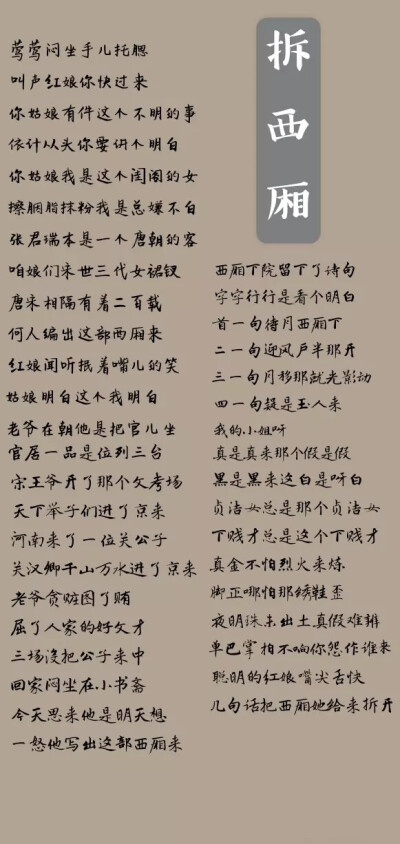 拆西厢
莺莺闷坐手儿托腮
叫声红娘你快过来
你姑娘有件这个不明的事
依计从头你要讲个明白
你姑娘我是这个闺阁的女
擦胭脂抹粉我是总嫌不白
张君瑞本是一个唐朝的客
咱娘们宋世三代女裙钗
唐宋相隔有着二百载
何人编出这部西厢来
红娘闻听抿着嘴儿的笑
姑娘明白这个我明白
老爷在朝他是把官儿坐
官居一品是位列三台
宗王爷开了那个文考场
天下举子们进了京来
河南来了一位关公子
关汉卿千山万水进了京来
老爷贪赃图了贿
屈了人家的好文才
三场没把公子来中
回家闷坐在小书斋
今天思来他是明天想
一怒他写出这部西厢来
西厢下院留下了诗句
字字行行是看个明白
首一句待月西厢下
二一句迎风户半那开
三一句月移那就光影动
四一句提是玉人来
我的小姐呀
真是真来那个假是假
黑是黑来这白是呀白
贞洁女总是那个贞洁女
下贱才总是这个下贱才
真金不怕烈火来炼
脚正哪怕那绣鞋歪
夜明珠未出土真假难辨
单巴掌拍不响你怨作谁来
聪明的红娘嘴尖舌快
几句话把西厢她给来拆开